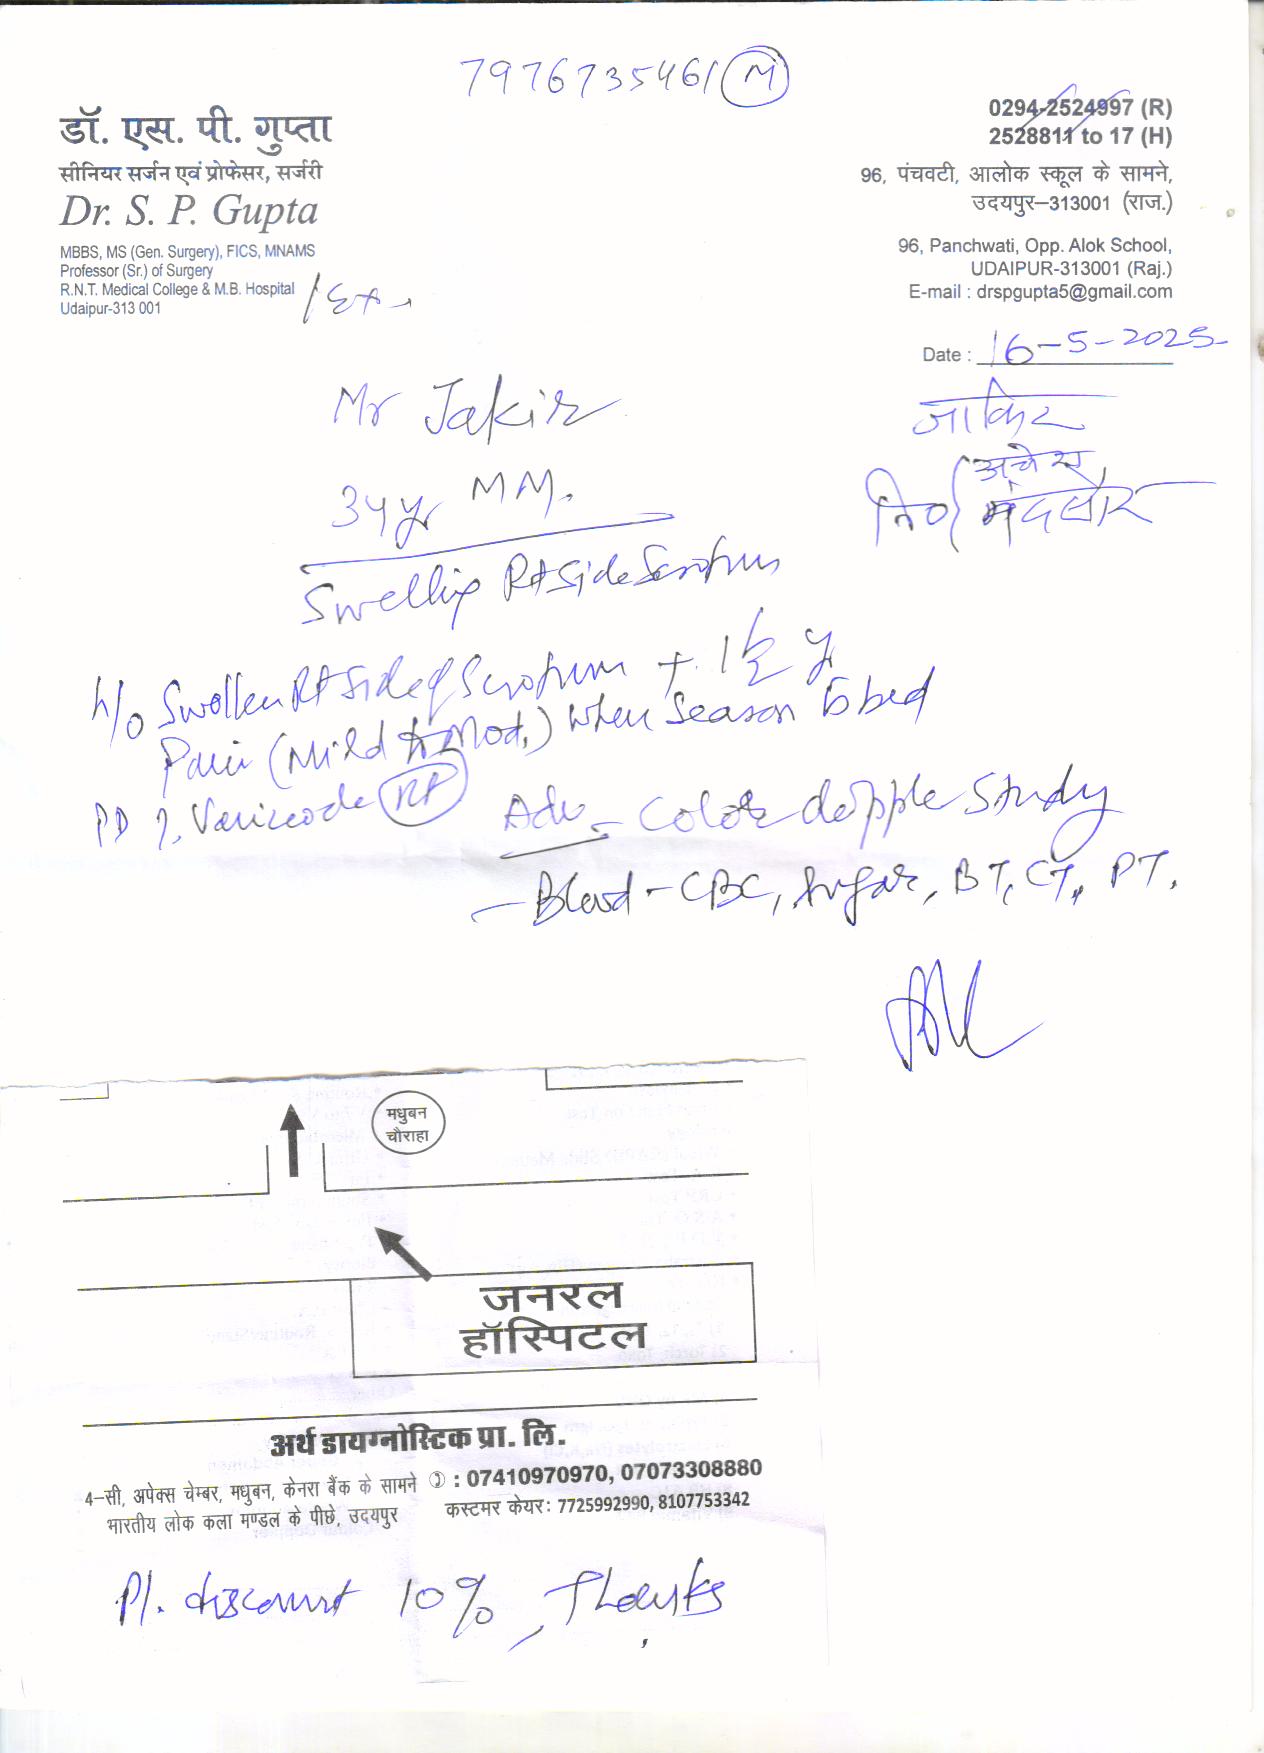 7976735461 M
डॉ. एस. पी. गुप्ता
सीनियर सर्जन एवं प्रोफेसर, सर्जरी
Dr. S. P. Gupta
MBBS, MS (Gen. Surgery), FICS, MNAMS
Professor (Sr.) of Surgery
R.N.T. Medical College & M.B. Hospital
Udaipur-313 001
/ Ex
0294-2524997 (R)
2528811 to 17 (H)
96, पंचवटी, आलोक स्कूल के सामने,
उदयपुर–313001 (राज.)
96, Panchwati, Opp. Alok School,
UDAIPUR-313001 (Raj.)
E-mail : drspgupta5@gmail.com
Date : 16-5-2025
Mr Jakir
जाकिर
34 yr MM.
नि०
Swelling Rt side Scrotum
h/o Swollen Rt side of Scrotum + 1½ y
Pain (Mild to Mod.) when to bed
PD ?. Varicocele Rt
Adv - Color dopple Study
- Blood - CBC, Sugar, BT, CT, PT.
मधुबन
चौराहा
जनरल
हॉस्पिटल
अर्थ डायग्नोस्टिक प्रा. लि.
4–सी, अपेक्स चेम्बर, मधुबन, केनरा बैंक के सामने
भारतीय लोक कला मण्डल के पीछे, उदयपुर
: 07410970970, 07073308880
कस्टमर केयर: 7725992990, 8107753342
Pl. discount 10%, Thanks